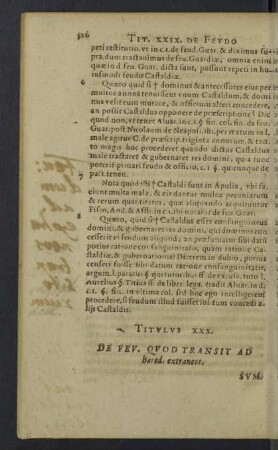 326 TIT. XXIX. DE FEVDO
peti restitutio, vt in c.1. de feud. Guar. & diximus su-
pra, dum tractauimus de feu. Guardiæ, omnia enim
quæ in d. feu. Guar. dicta sunt, possunt repeti in hu-
iusmodi feudo Castaldiæ.
6 Quæro quid si dominus & antecessores eius per
multos annos tenuissent vnum Castaldum, & domi-
nus velit eum mutare, & officium alteri concedere,
an possit Castaldus opponere de præscriptione? Dic
quod non, vt tenet Aluar. in c.1. §. fin. col. fin. de feu.
Guar. post Nicolaum de Neapoli. ibi, per
male agitur C. de præscript. triginta annorum, &
to magis hoc procederet quando dictus Castaldus
male tractaret & gubernaret res domini, quia tunc
poterit priuari feudo & officio, c.1. §. quicunque de
7 pace tenen.
Nota quod isti Castaldi sunt in Apulia, vbi fa-
ciunt multa mala, & eis dantur multæ pecuniarum
& rerum quantitates, quæ aliquando acquiruntur
Fisco, And. & Afflict. in c.1. ibi notatur de feu. Guar.
8 Quæro, quid si Castaldus esset consanguineus
domini, & gubernaret res domini, qui dominus con-
cesserit ei feudum aliquod, an præsumatur sibi dari
potius ratione consanguinitatis, quàm ratione Casta-
ldiæ, & gubernationis? Dicerem in dubio, potius
censeri fuisse sibi datum ratione consanguinitatis,
argum. l.
Aurelius §. Titius ff. de liber. lega. tradit Aluar. in d.
c.1. §. fin. in vltima col. sed hoc ego intelligerem
procedere, si feudum illud fuisset solitum concedi a-
lijs Castaldis.
TITVLVS XXX.
DE FEV. QVOD TRANSIT AD
hæred. extraneos.
SVM-